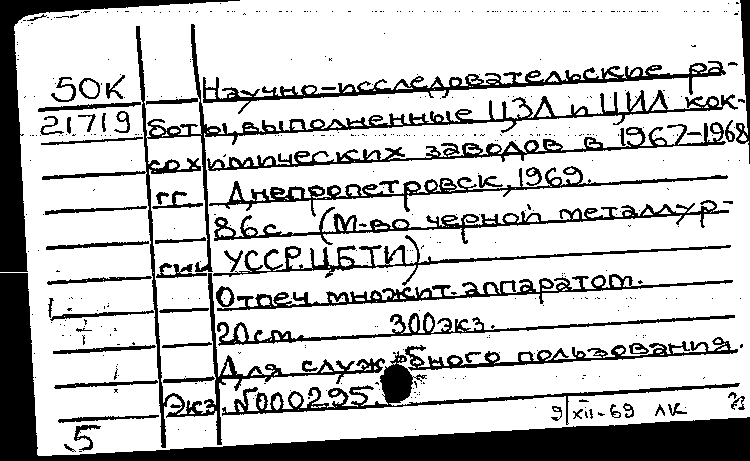 50К Научно-исследовательские ра-
21719 боты, выполненные ЦЗЛ и ЦИЛ кок-
сохимических заводов в 1967-1968
гг. Днепропетровск, 1969.
86с. (М-во черной металлур-
гии УССР. ЦБТИ).
Отпеч. множит. аппаратом.
20см. 300экз.
Для служебного пользования.
Экз. №000295.
9|XII-69 ЛК
5